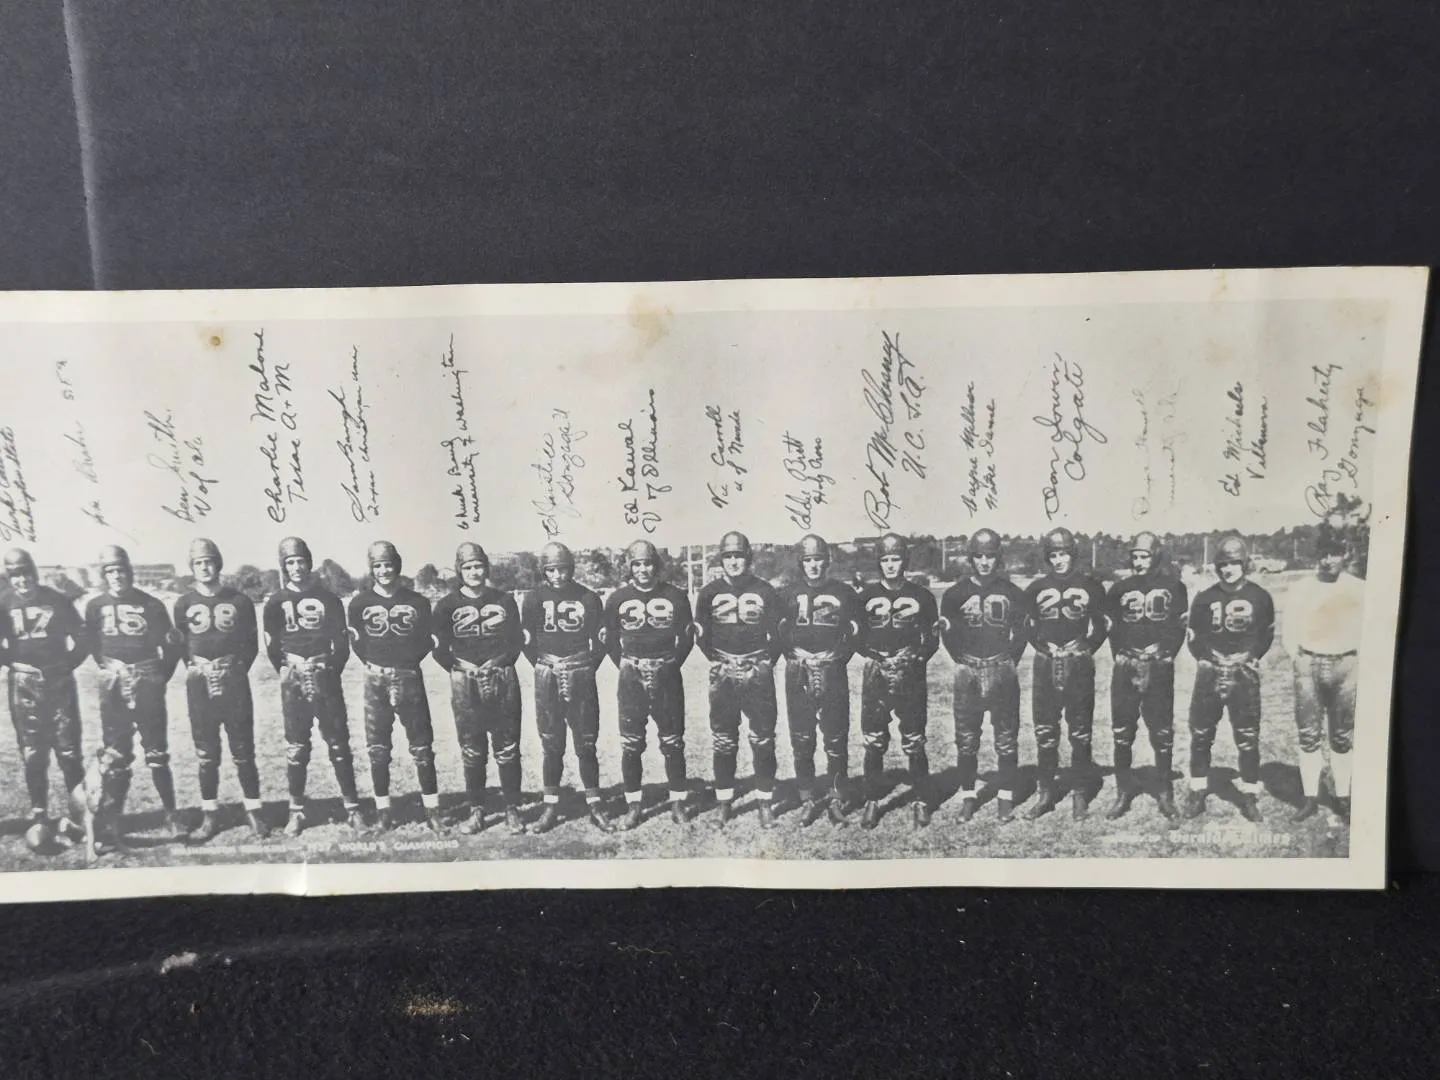 Ben Smith
U of ala
Charlie Malone
Texas A+M
Sam Baugh
Texas Christian uni
Chuck Bond
university of Washington
E Justice
Gonzaga U
Ed Kawal
U of Illinois
Vic Carroll
U of Nevada
Eddie Britt
Holy Cross
Bob McChesney
U.C.L.A.
Wayne Millner
Notre Dame
Don Irwin
Colgate
Ed Michaels
Villanova
Ray Flaherty
Gonzaga
17
15
38
19
33
22
13
39
28
12
32
40
23
30
18
1937 WORLD'S CHAMPIONS